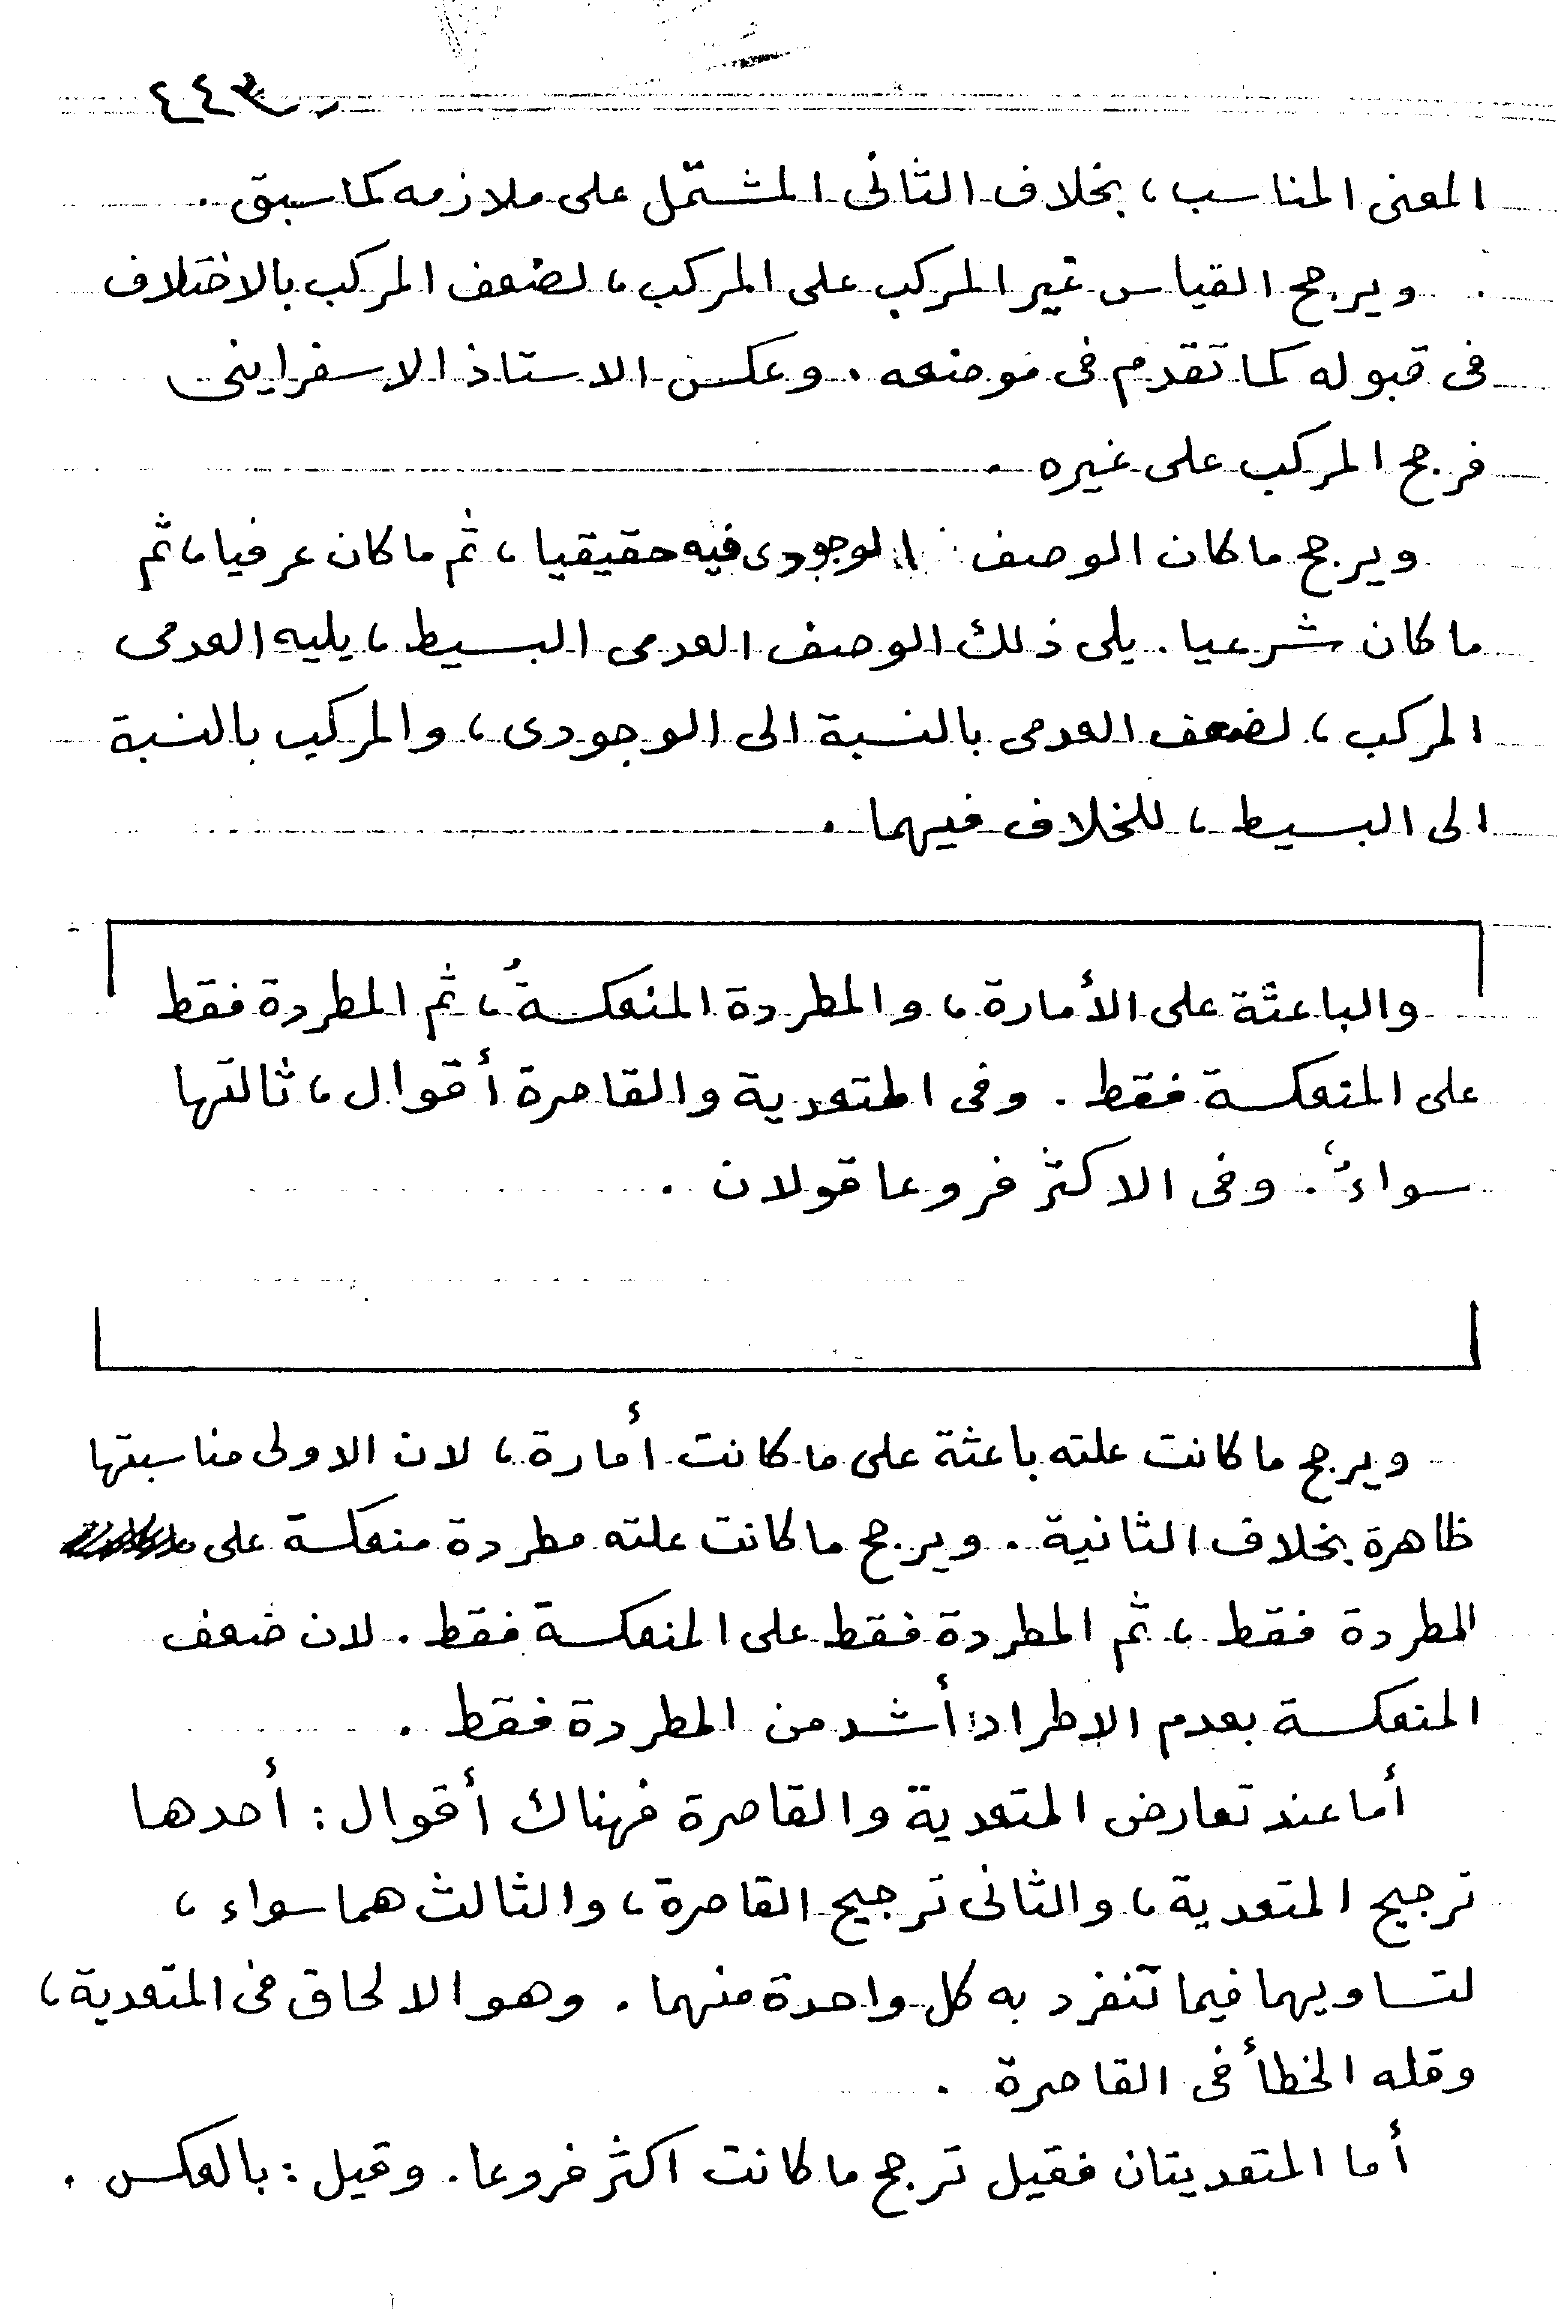 ٤٤٣
المعنى المناسب ، بخلاف الثانى المشتمل على ملازمه كما سبق .
ويرجح القياس غير المركب على المركب ، لضعف المركب بالاختلاف
فى قبوله كما تقدم فى موضعه . وعكس الاستاذ الاسفراينى
فرجح المركب على غيره .
ويرجح ما كان الوصف الوجودى فيه حقيقيا ، ثم ما كان عرفيا ، ثم
ما كان شرعيا . يلى ذلك الوصف العدمى البسيط ، يليه العدمى
المركب ، لضعف العدمى بالنسبة الى الوجودى ، والمركب بالنسبة
الى البسيط ، للخلاف فيهما .
والباعثة على الأمارة ، والمطردة المنعكسةُ ، ثم المطردة فقط
على المنعكسة فقط . وفى المتعدية والقاصرة أقوال ، ثالثها
سواءٌ . وفى الاكثر فروعا قولان .
ويرجح ما كانت علته باعثة على ما كانت أمارة ، لان الاولى مناسبتها
ظاهرة بخلاف الثانية . ويرجح ما كانت علته مطردة منعكسة على
المطردة فقط ، ثم المطردة فقط على المنعكسة فقط . لان ضعف
المنعكسة بعدم الاطراد أشد من المطردة فقط .
أما عند تعارض المتعدية والقاصرة فهناك أقوال : أحدها
ترجيح المتعدية ، والثانى ترجيح القاصرة ، والثالث هما سواء ،
لتساويهما فيما تنفرد به كل واحدة منهما . وهو الالحاق فى المتعدية ،
وقله الخطأ فى القاصرة .
أما المتعديتان فقيل ترجح ما كانت اكثر فروعا . وقيل : بالعكس .